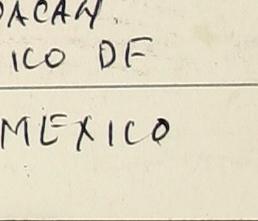 OACAN.
ICO DF
MEXICO